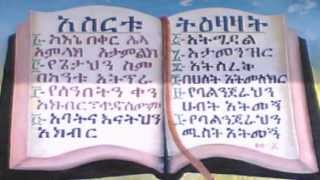 አስርቱ ትዕዛዛት
፩ ከእኔ በቀር ሌላ
አምላክ አታምልክ
፪ የጌታህን ስም
በከንቱ አትጥራ
፫ የሰንበትን ቀን
አክብር
፬ አባትና እናትህን
አክብር
፭ አትግደል
፮ አታመንዝር
፯ አትስረቅ
፰ በሀሰት አትመስክር
፱ የባልንጀራህን
ሀብት አትመኝ
፲ የባልንጀራህን
ሚስት አትመኝ